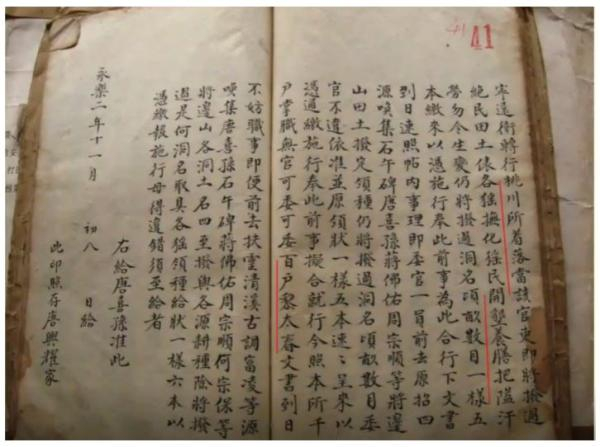 41
41
寧遠衛轉行桃川所着落當該官吏即將撥過
絕民田土俵各猺撫化猺民開墾養膳把隘汗
勞勿令生變仍將撥過洞名頃畝數目一樣五
本繳來以憑施行奉此前事為此合行下文書
到日速照帖內事理即委官一員前去原招四
源喚集石午碑唐喜孫蔣佛佑周宗順等將邊
山田土撥定領種仍將撥過洞名頃畝數目委
官不違依准並原領狀一樣五本速〻呈來以
憑通繳施行奉此前事擬合就行今照本所千
戶掌職無官可委可委百戶黎太春文書到日
不妨職事即便前去扶雲清溪古調富凌等源
喚集唐喜孫石午碑蔣佛佑周宗順何宗保等
將邊山各洞土名四至撥與各源耕種除將撥
過是何洞名取具各猺領種給狀一樣六本以
憑繳報施行毋得違錯須至給者
右給唐喜孫准此
永樂二年十一月 初八 日給
此印照存唐興耀家